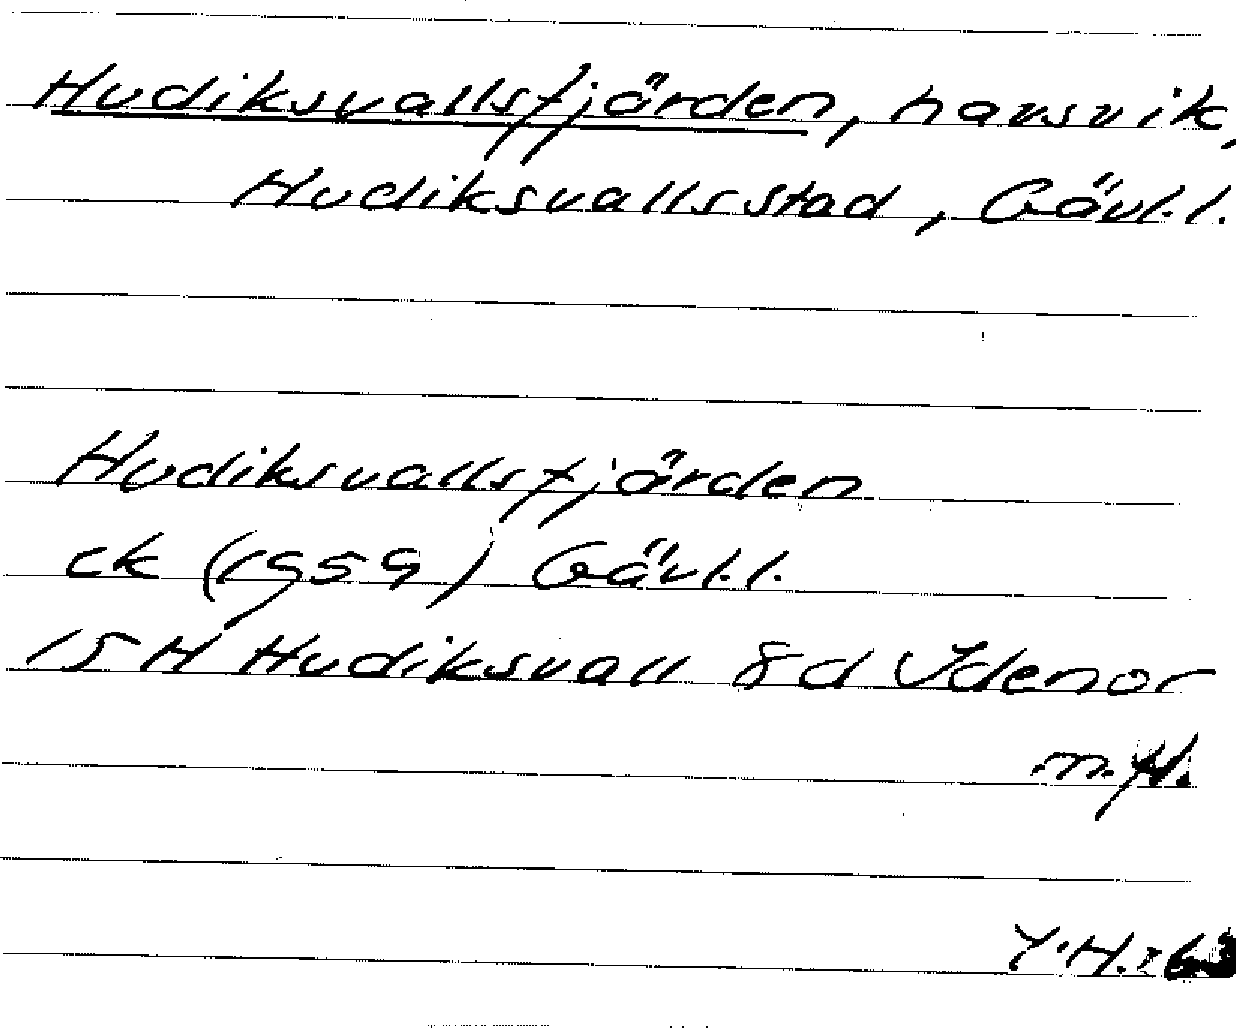 Hudiksvallsfjärden, havsvik,
Hudiksvalls stad, Gävl.l.
Hudiksvallsfjärden
ek (1959) Gävl.l.
15 H Hudiksvall 8d Idenor
m.fl.
Y.H.